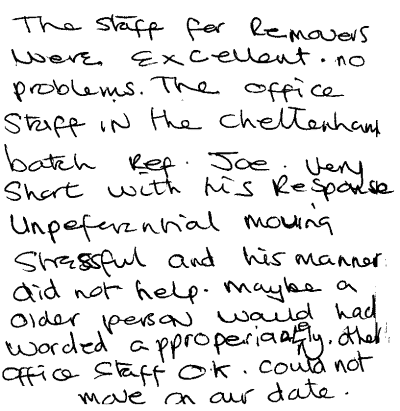 The staff for Removers
were excellent. no
problems. The office
staff in the Cheltenham
batch Ref. Joe. very
short with his Response
Unpeferential moving
Stressful and his manner
did not help. maybe a
older person would had
worded approperiately. other
office staff OK. could not
move on our date.